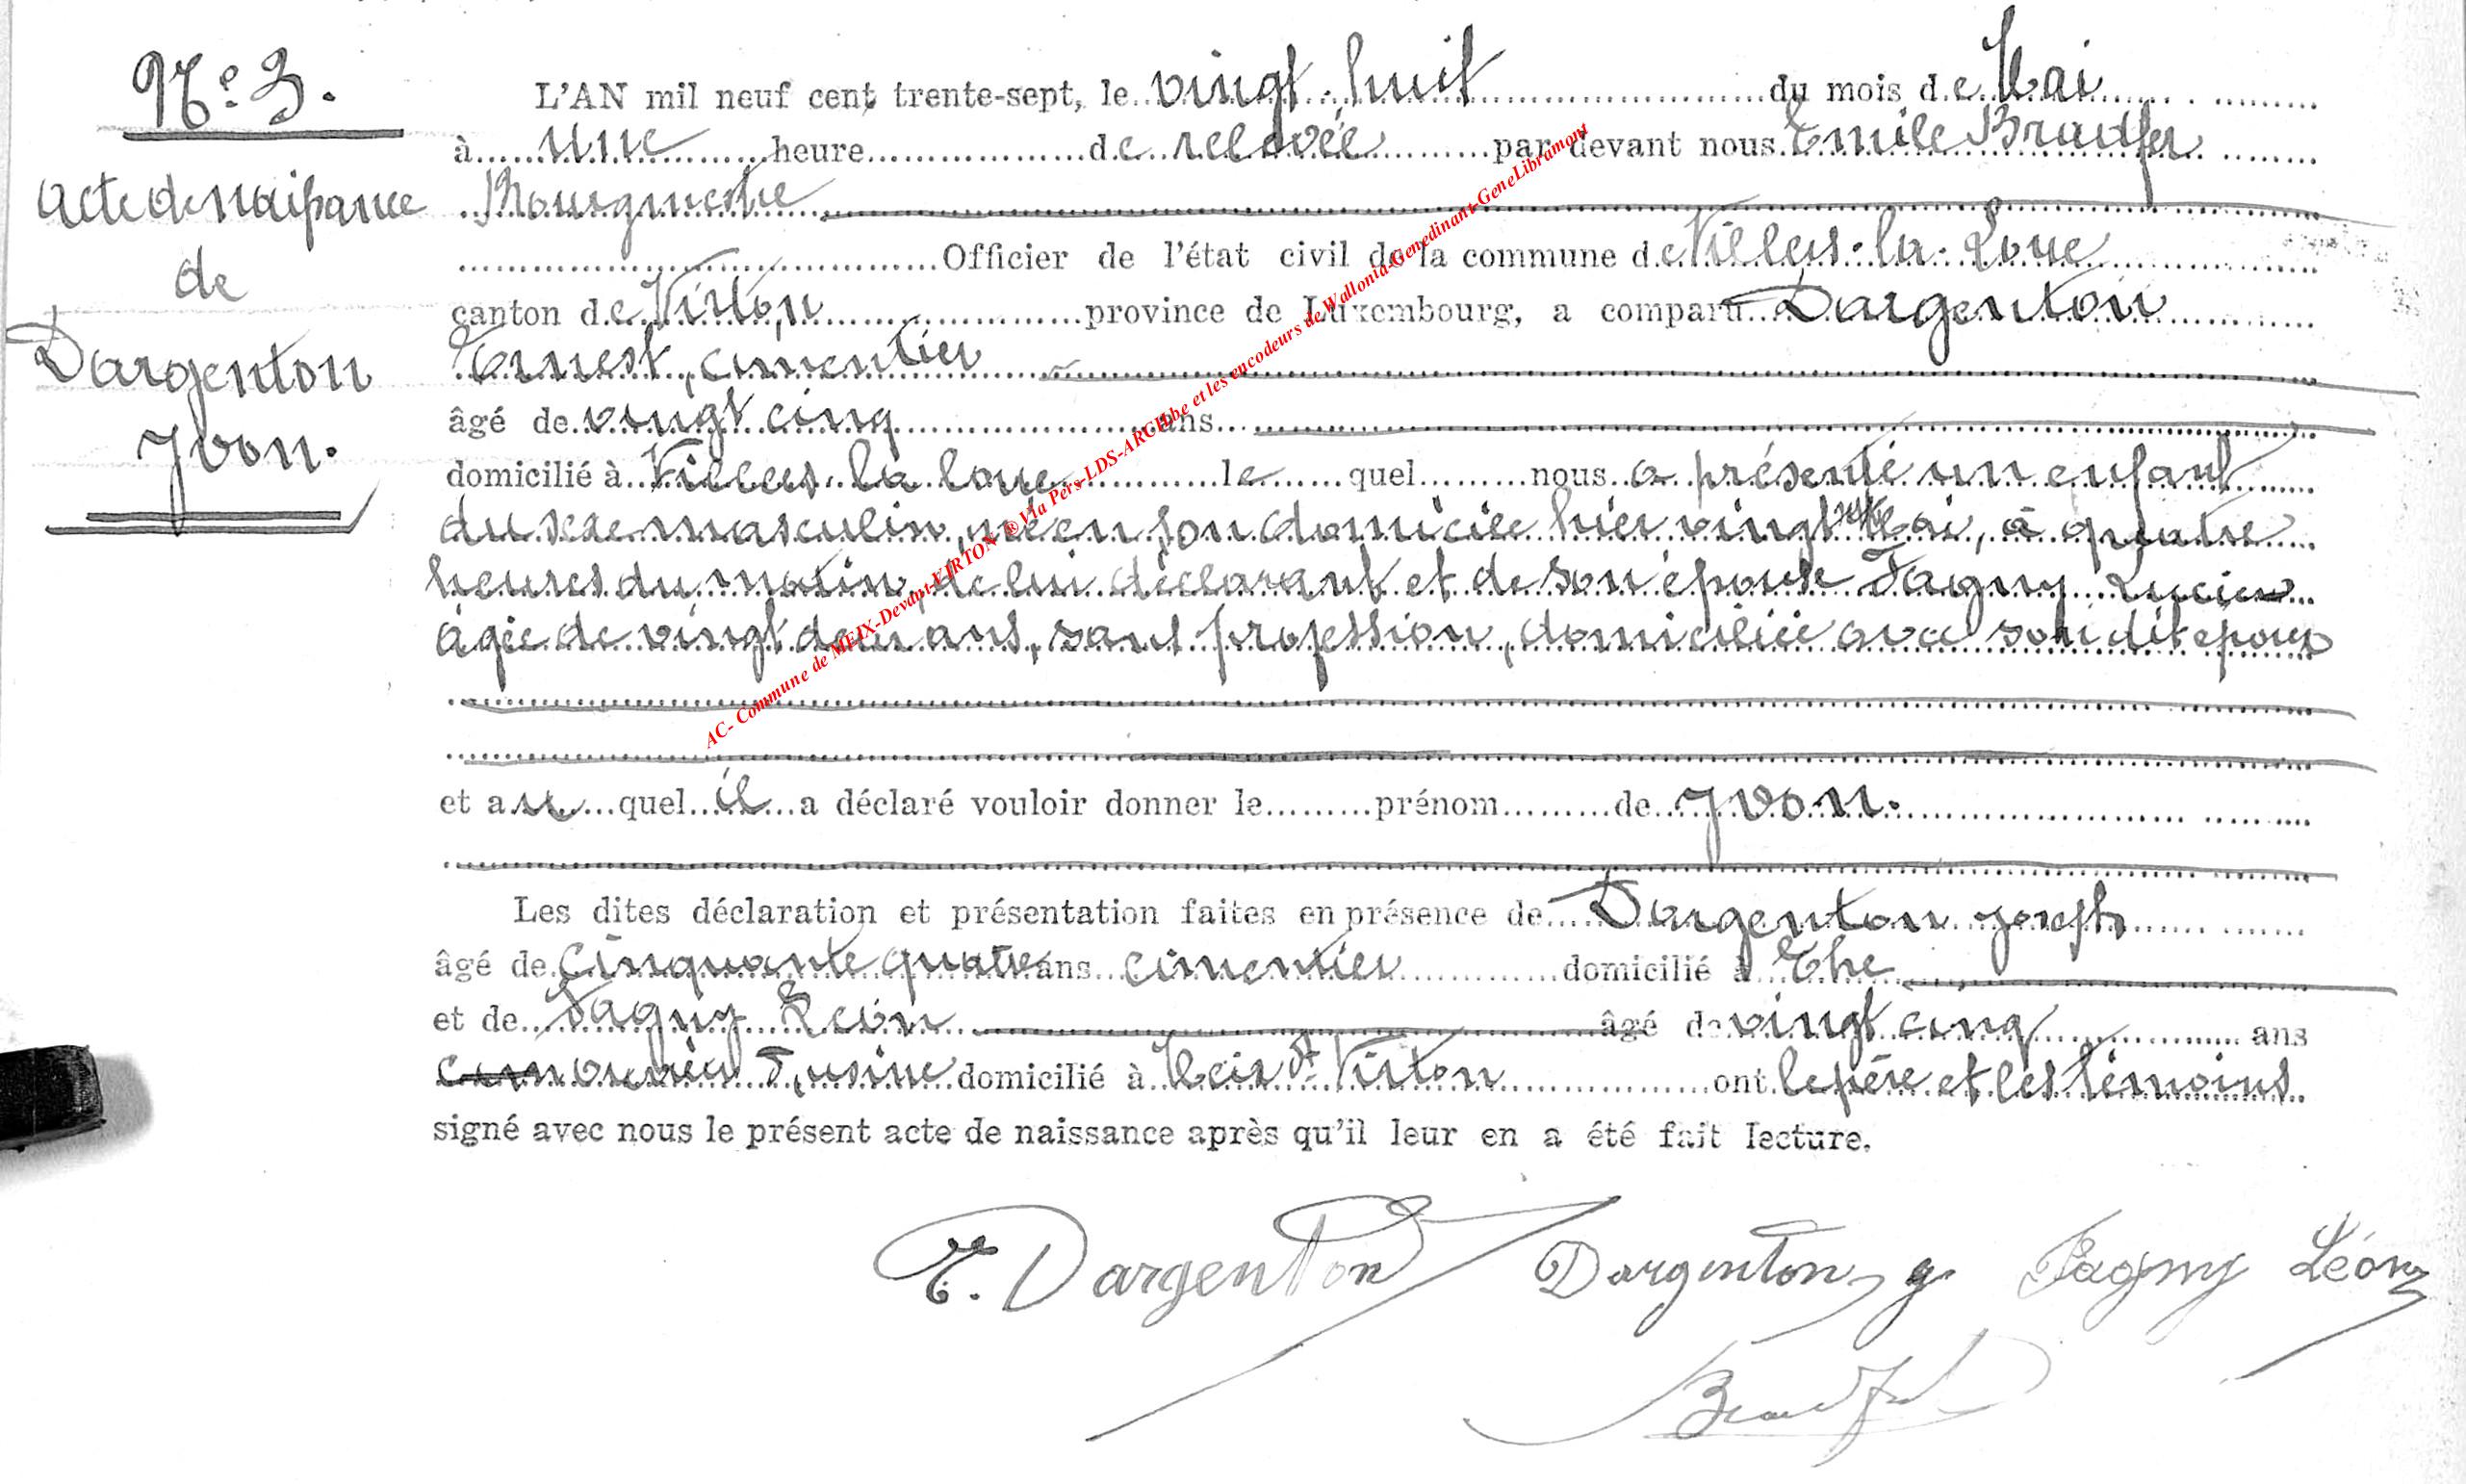 N° 3.
Acte de naissance
de
Dargenton
Yvon.
L'AN mil neuf cent trente-sept, le vingt-huit du mois de Mai
à une heure de relevée par devant nous Emile Bradfer
Bourgmestre
Officier de l'état civil de la commune de Villers-la-Loue
canton de Virton province de Luxembourg, a comparu Dargenton
Ernest, cimentier
âgé de vingt cinq ans
domicilié à Villers-la-loue le quel nous a présenté un enfant
du sexe masculin, né en son domicile hier vingt sept Mai, à quatre
heures du matin, de lui déclarant et de son épouse Fagny Lucie
âgée de vingt deux ans, sans profession, domiciliée avec son dit époux
et au quel il a déclaré vouloir donner le prénom de Yvon.
Les dites déclaration et présentation faites en présence de Dargenton Joseph
âgé de cinquante quatre ans cimentier domicilié à Ethe
et de Fagny Léon âgé de vingt cinq ans
ouvrier d'usine domicilié à Meix dt Virton ont le père et les témoins
signé avec nous le présent acte de naissance après qu'il leur en a été fait lecture.
E. Dargenton Dargenton J Fagny Léon
Bradfer
AC- Commune de MEIX-Devant-VIRTON ® Via Pers-LDS-ARCHbe et les encodeurs de Wallonia-Genedinant-GeneLibramont